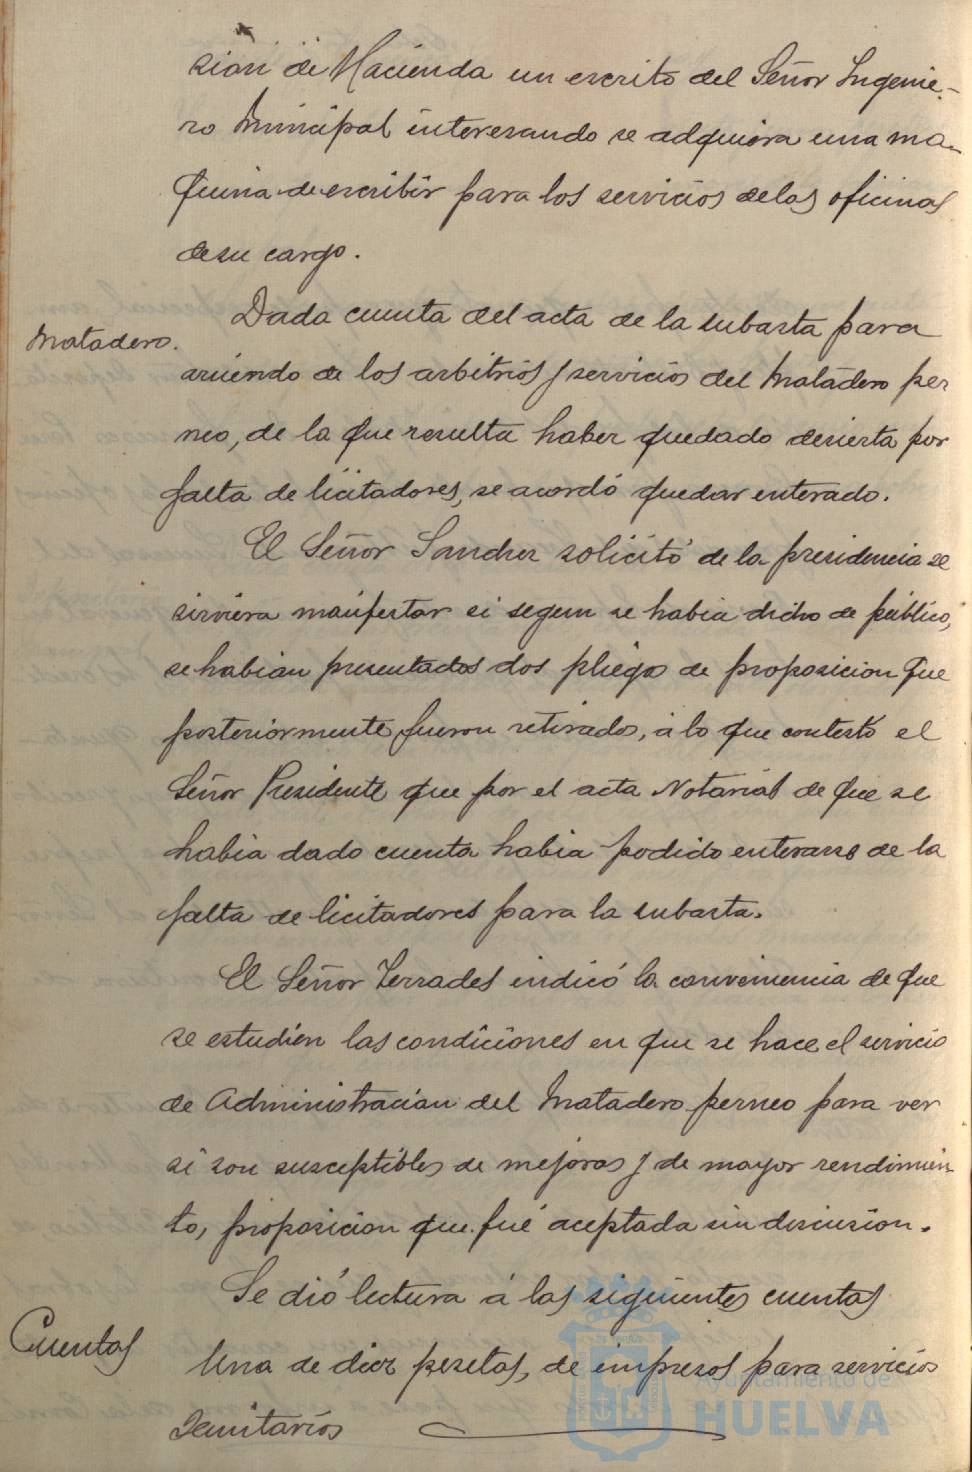 sion de Hacienda un escrito del Señor Ingenie-
ro Municipal interesando se adquiera una má-
quina de escribir para los servicios de las oficinas
de su cargo.
Matadero.
Dada cuenta del acta de la subasta para
arriendo de los arbitrios y servicios del Matadero per
neo, de la que resulta haber quedado desierta por
falta de licitadores, se acordó quedar enterado.
El Señor Sanchez solicitó de la presidencia se
sirviera manifestar si segun se habia dicho de público,
se habian presentados dos pliegos de proposicion que
posteriormente fueron retirados, á lo que contestó el
Señor Presidente que por el acta Notarial de que se
habia dado cuenta habia podido enterarse de la
falta de licitadores para la subasta.
El Señor Terrades indicó la conveniencia de que
se estudien las condiciones en que se hace el servicio
de Administracion del Matadero perneo para ver
si son susceptibles de mejoras y de mayor rendimien
to, proposicion que fué aceptada sin discusion.
Se dió lectura á las siguientes cuentas
Cuentas
Una de diez pesetas, de impresos para servicios
Sanitarios
Ayuntamiento de
HUELVA